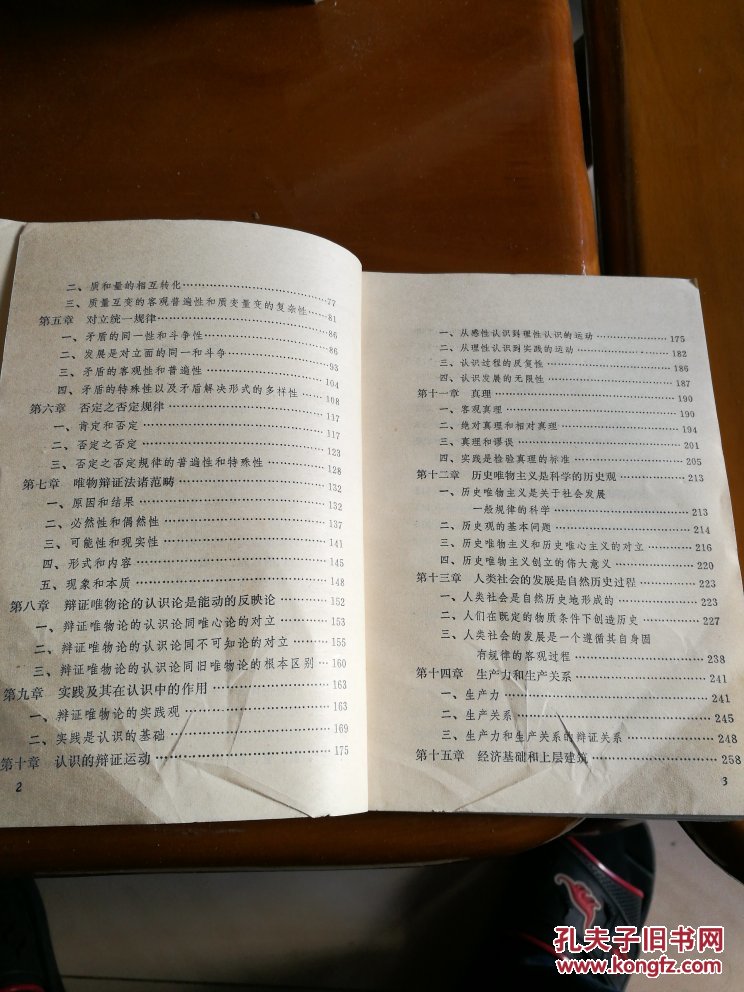 二、质和量的相互转化……………………77
三、质量互变的客观普遍性和质变量变的复杂性…81
第五章 对立统一规律……………………86
一、矛盾的同一性和斗争性……………………86
二、发展是对立面的同一和斗争……………………93
三、矛盾的客观性和普遍性……………………104
四、矛盾的特殊性以及矛盾解决形式的多样性……108
第六章 否定之否定规律……………………117
一、肯定和否定……………………117
二、否定之否定……………………123
三、否定之否定规律的普遍性和特殊性……………128
第七章 唯物辩证法诸范畴……………………132
一、原因和结果……………………132
二、必然性和偶然性……………………137
三、可能性和现实性……………………141
四、形式和内容……………………145
五、现象和本质……………………148
第八章 辩证唯物论的认识论是能动的反映论……152
一、辩证唯物论的认识论同唯心论的对立………153
二、辩证唯物论的认识论同不可知论的对立……155
三、辩证唯物论的认识论同旧唯物论的根本区别…160
第九章 实践及其在认识中的作用……………………163
一、辩证唯物论的实践观……………………163
二、实践是认识的基础……………………169
第十章 认识的辩证运动……………………175
2
一、从感性认识到理性认识的运动……………………175
二、从理性认识到实践的运动……………………182
三、认识过程的反复性……………………186
四、认识发展的无限性……………………187
第十一章 真理……………………190
一、客观真理……………………190
二、绝对真理和相对真理……………………194
三、真理和谬误……………………201
四、实践是检验真理的标准……………………205
第十二章 历史唯物主义是科学的历史观…………213
一、历史唯物主义是关于社会发展
一般规律的科学……………………213
二、历史观的基本问题……………………214
三、历史唯物主义和历史唯心主义的对立………216
四、历史唯物主义创立的伟大意义……………220
第十三章 人类社会的发展是自然历史过程………223
一、人类社会是自然历史地形成的……………223
二、人们在既定的物质条件下创造历史…………227
三、人类社会的发展是一个遵循其自身固
有规律的客观过程……………………238
第十四章 生产力和生产关系……………………241
一、生产力……………………241
二、生产关系……………………245
三、生产力和生产关系的辩证关系……………248
第十五章 经济基础和上层建筑……………………258
3
孔夫子旧书网
www.kongfz.com